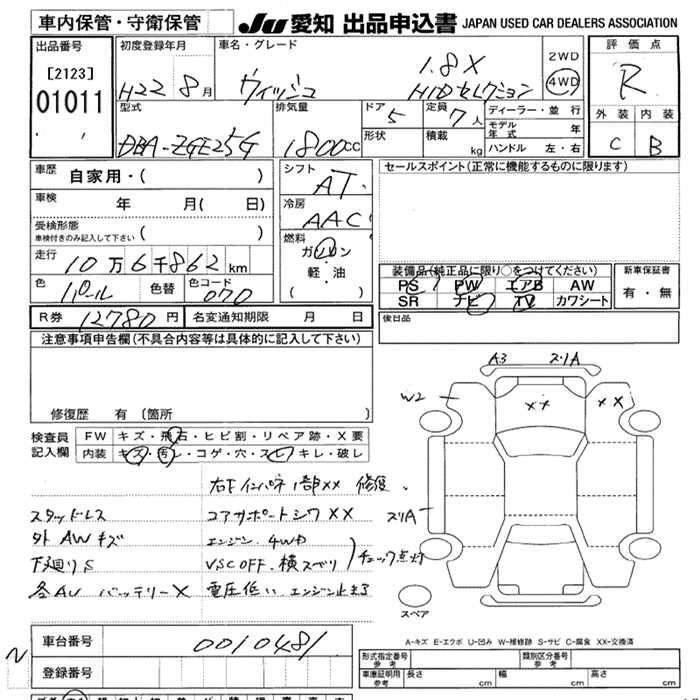 車内保管・守衛保管
JU 愛知 出品申込書 JAPAN USED CAR DEALERS ASSOCIATION
出品番号
[2123]
01011
初度登録年月
H22 8月
車名・グレード
ウィッシュ
1.8X
HIDセレクション
2WD
4WD
評価点
R
外装 内装
C B
型式
DBA-ZGE25G
排気量
1800cc
ドア
5
形状
定員
7人
積載
kg
ディーラー・並行
モデル年式 年
ハンドル 左・右
車歴
自家用・( )
車検
年 月( 日)
受検形態
車検付きのみ記入して下さい ( )
走行
10万6千862km
色
パール
色替
色コード
070
シフト
AT
冷房
AAC
燃料
ガソリン
軽・油
( )
セールスポイント(正常に機能するものに限ります)
装備品(純正品に限り○をつけてください)
PS PW エアB AW
SR ナビ TV カワシート
新車保証書
有・無
後日品
R券 12780円
名変通知期限 月 日
注意事項申告欄(不具合内容等は具体的に記入して下さい)
修復歴 有 〔箇所 〕
検査員記入欄
FW キズ・飛石・ヒビ割・リペア跡・X要
内装 キズ・汚レ・コゲ・穴・スレ・キレ・破レ
右下インパネ1部XX 修復.
スタッドレス
コアサポートシワXX
外AWキズ
エンジン.4WD
下廻りS
VSC OFF.横スベリ
チェック点灯
バッテリーX
電圧低い.
A3
ズリA
W2
XX
XX
ズリA
スペア
A-キズ E-エクボ U-凹み W-補修跡 S-サビ C-腐食 XX-交換済
N
車台番号
0010481
登録番号
形式指定番号
参考
類別区分番号
参考
車庫証明用
参考
長さ cm
幅 cm
高さ cm